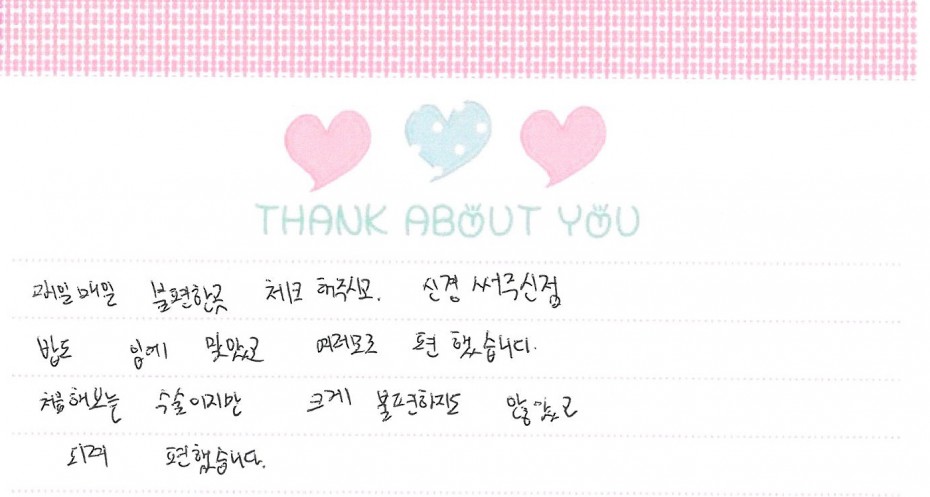 THANK ABOUT YOU
매일매일 불편한곳 체크 해주시고. 신경 써주신점
밥도 입에 맞았고 여러모로 편했습니다.
처음해보는 수술이지만 크게 불편하지도 않았고
되려 편했습니다.